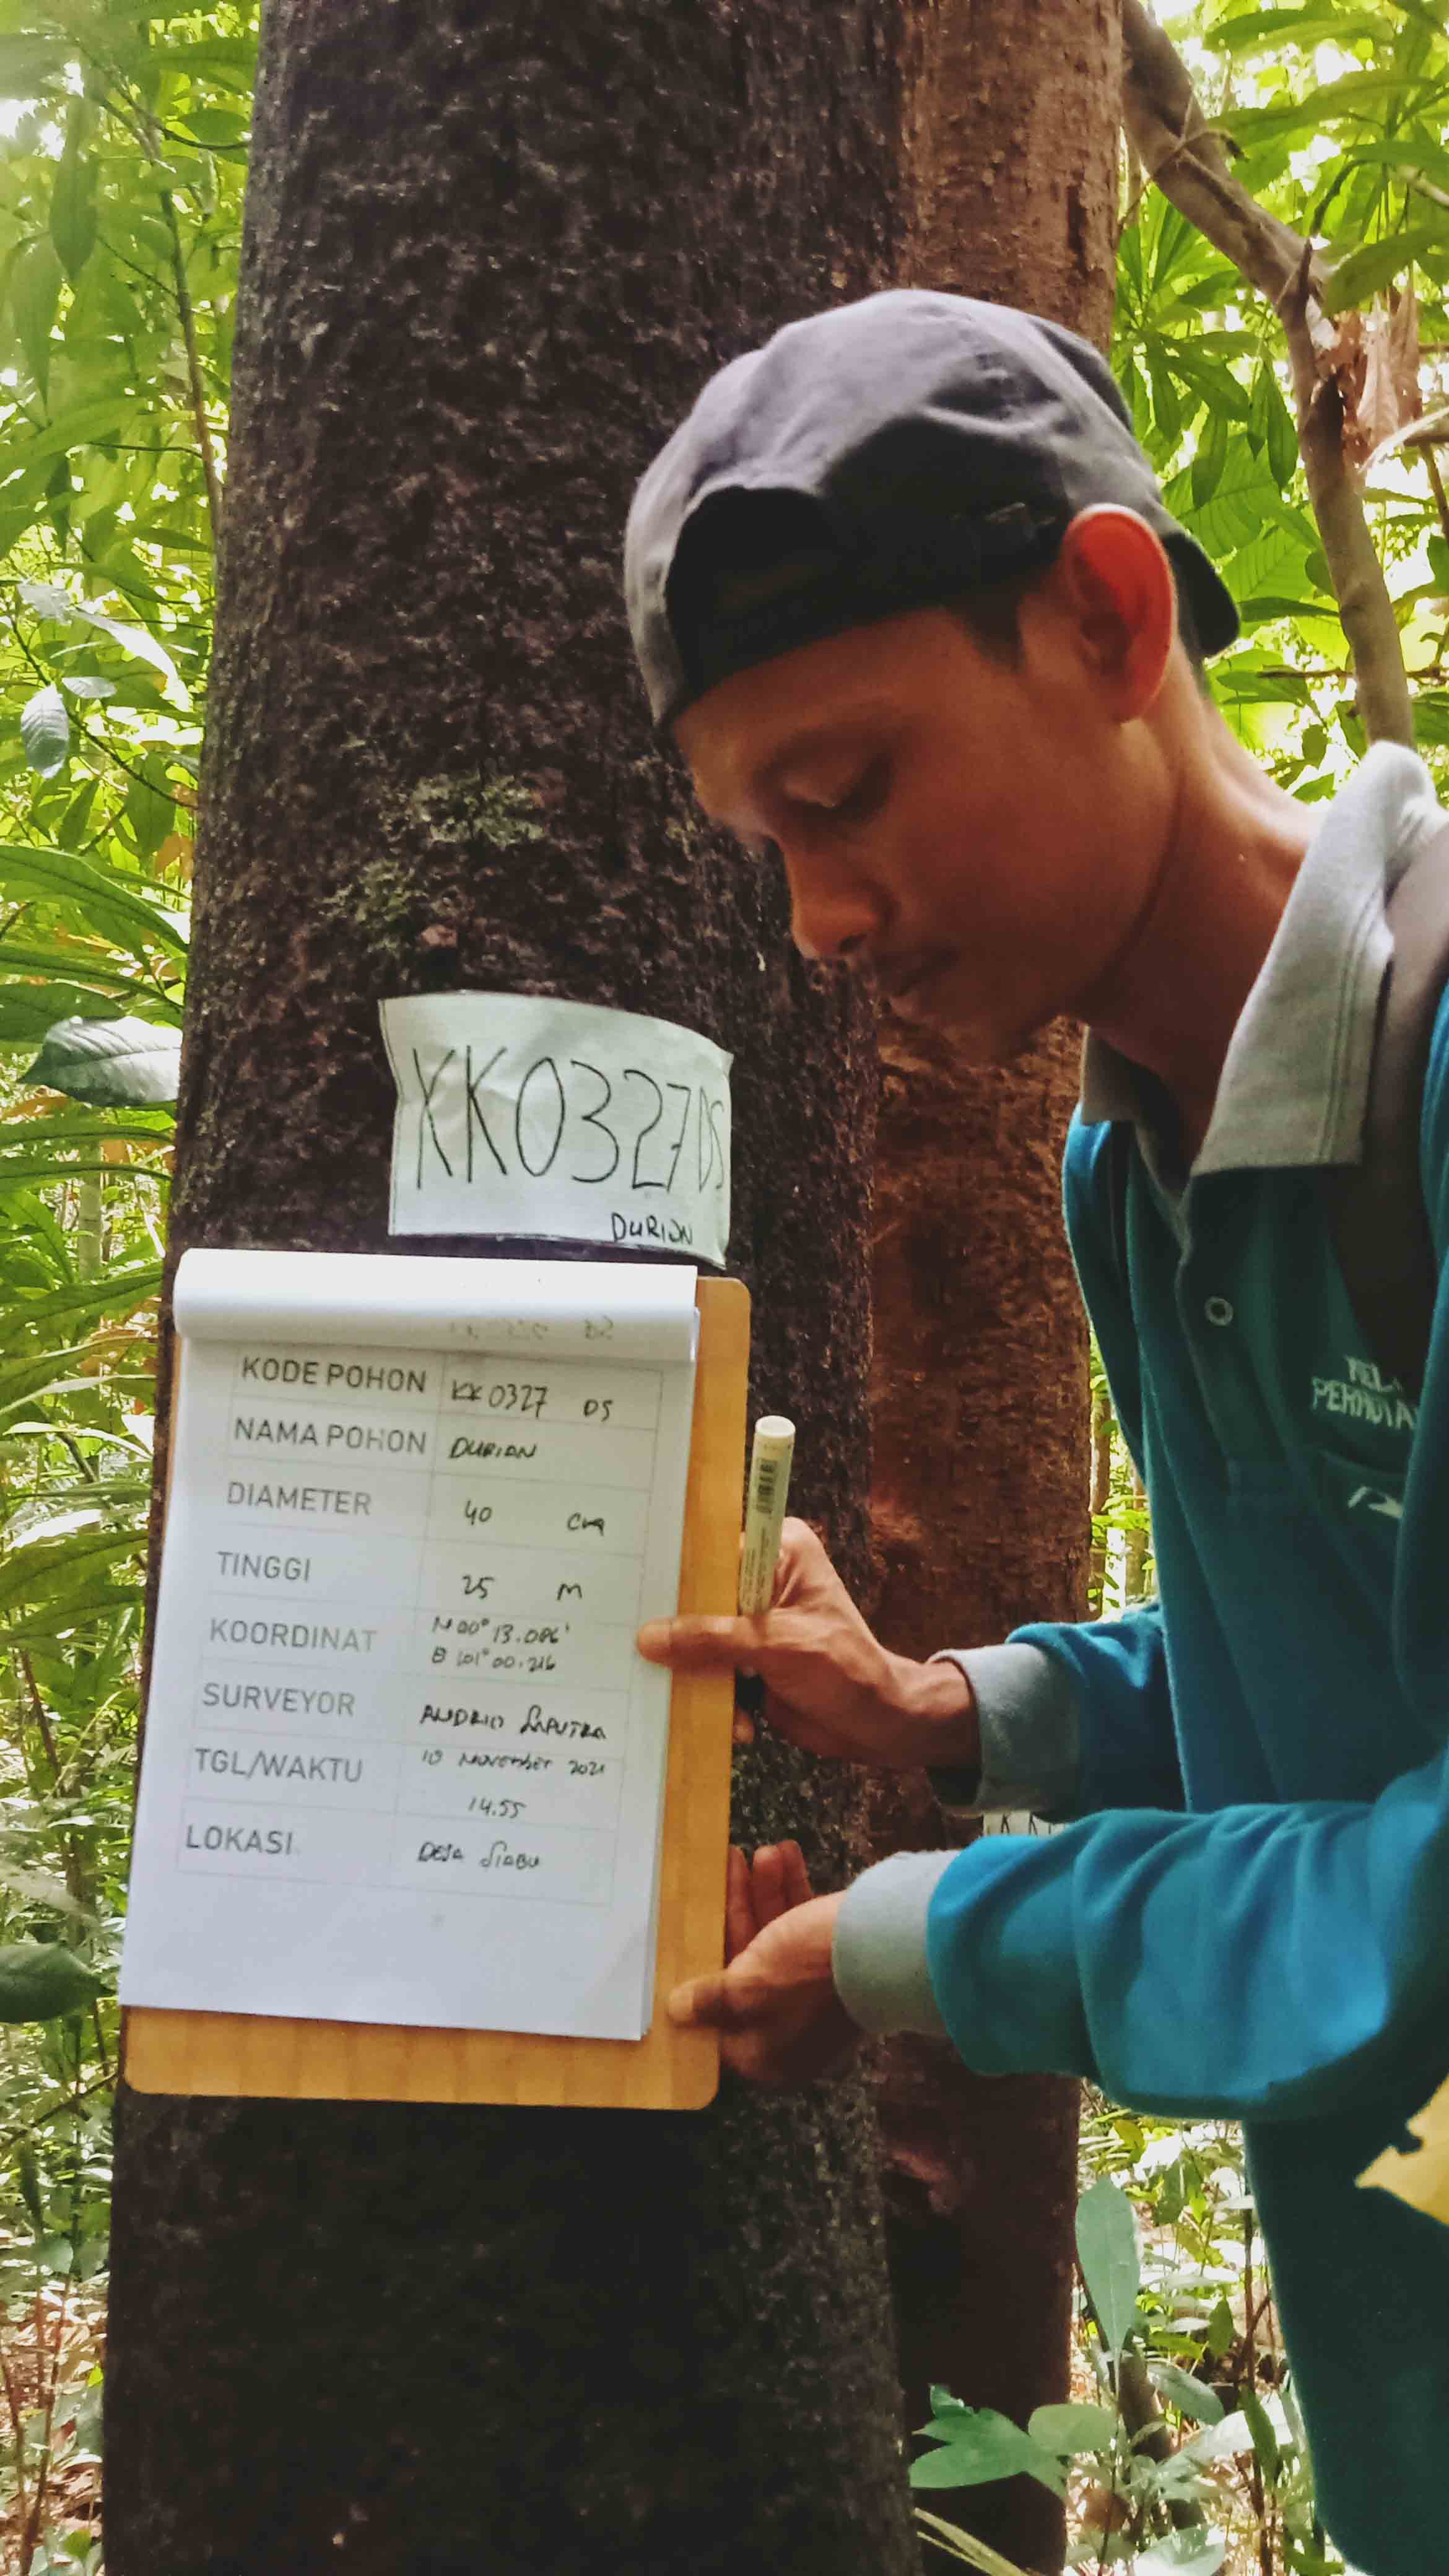 KK0327DS
DURIAN
KODE POHON KK0327 DS
NAMA POHON DURIAN
DIAMETER 40 cm
TINGGI 25 M
KOORDINAT N 00° 13.086'
E 101° 00.216
SURVEYOR ANDRIO SAPUTRA
TGL/WAKTU 10 NOVEMBER 2021
14.55
LOKASI DESA SIABU